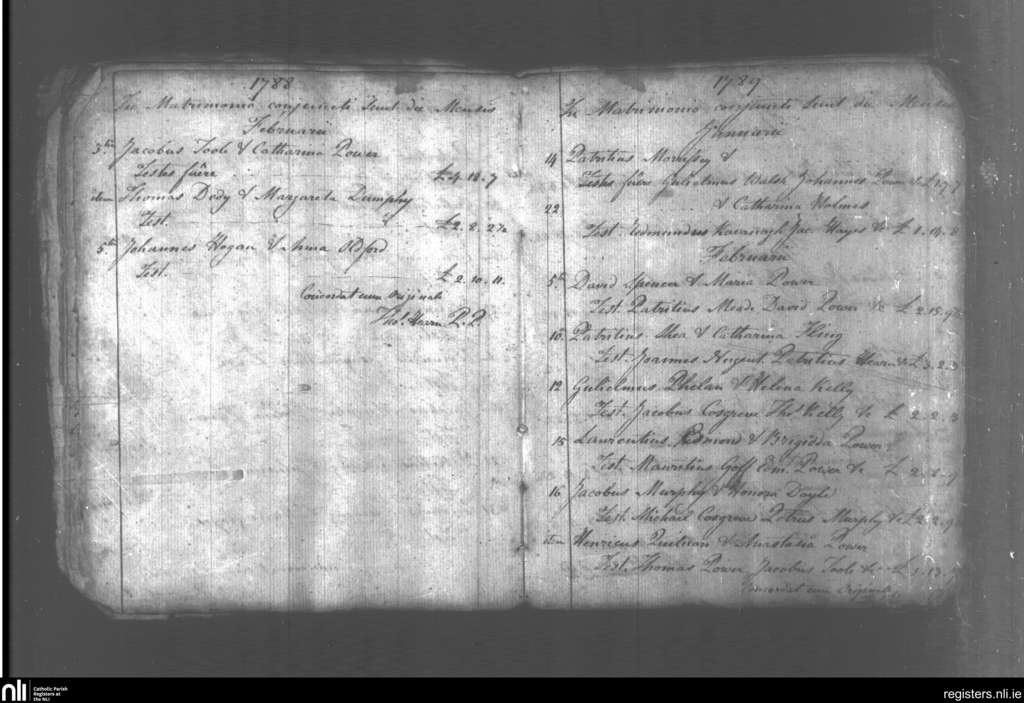 1788
In Matrimonio conjuncti sunt die Mensis
Februarii
3tia Jacobus Toole & Catharina Power
Testes fûere £4.13.7
item Thomas Dody & Margareta Dumphy
Test. £2.8.2½
5ta Johannes Hogan & Anna Oldford
Test. £2.10.11.
Concordat cum Originali
Thos. Hearn P.P.
1789
In Matrimonio conjuncti sunt die Mensis
Januarii
14 Patritius Morrissy &
Testes fuere Gulielmus Walsh Johannes Power &c
22 & Catharina Holmes
Test. Edmundus Kavanagh Jac. Hayes &c £1.14.8
Februarii
5ta David Spencer & Maria Power
Test. Patritius Meade David Power &c £2.15.
10. Patritius Shea & Catharina Kling
Test. Joannes Nugent Patritius Hearn &c £3.2.
12 Gulielmus Phelan & Helena Kelly
Test. Jacobus Cosgrove Thos. Kelly &c £2.2.3
15 Laurentius Redmond & Brigidda Power
Test. Mauritius Goff Edm. Power &c £2.
16 Jacobus Murphy & Honora Doyle
Test. Michael Cosgrove Petrus Murphy &c £2.2.9
item Henricus Quilnan & Anastasia Power
Test. Thomas Power Jacobus Toole &c £1.13.
Concordat cum Originali
nli
Catholic Parish
Registers at
the NLI
registers.nli.ie